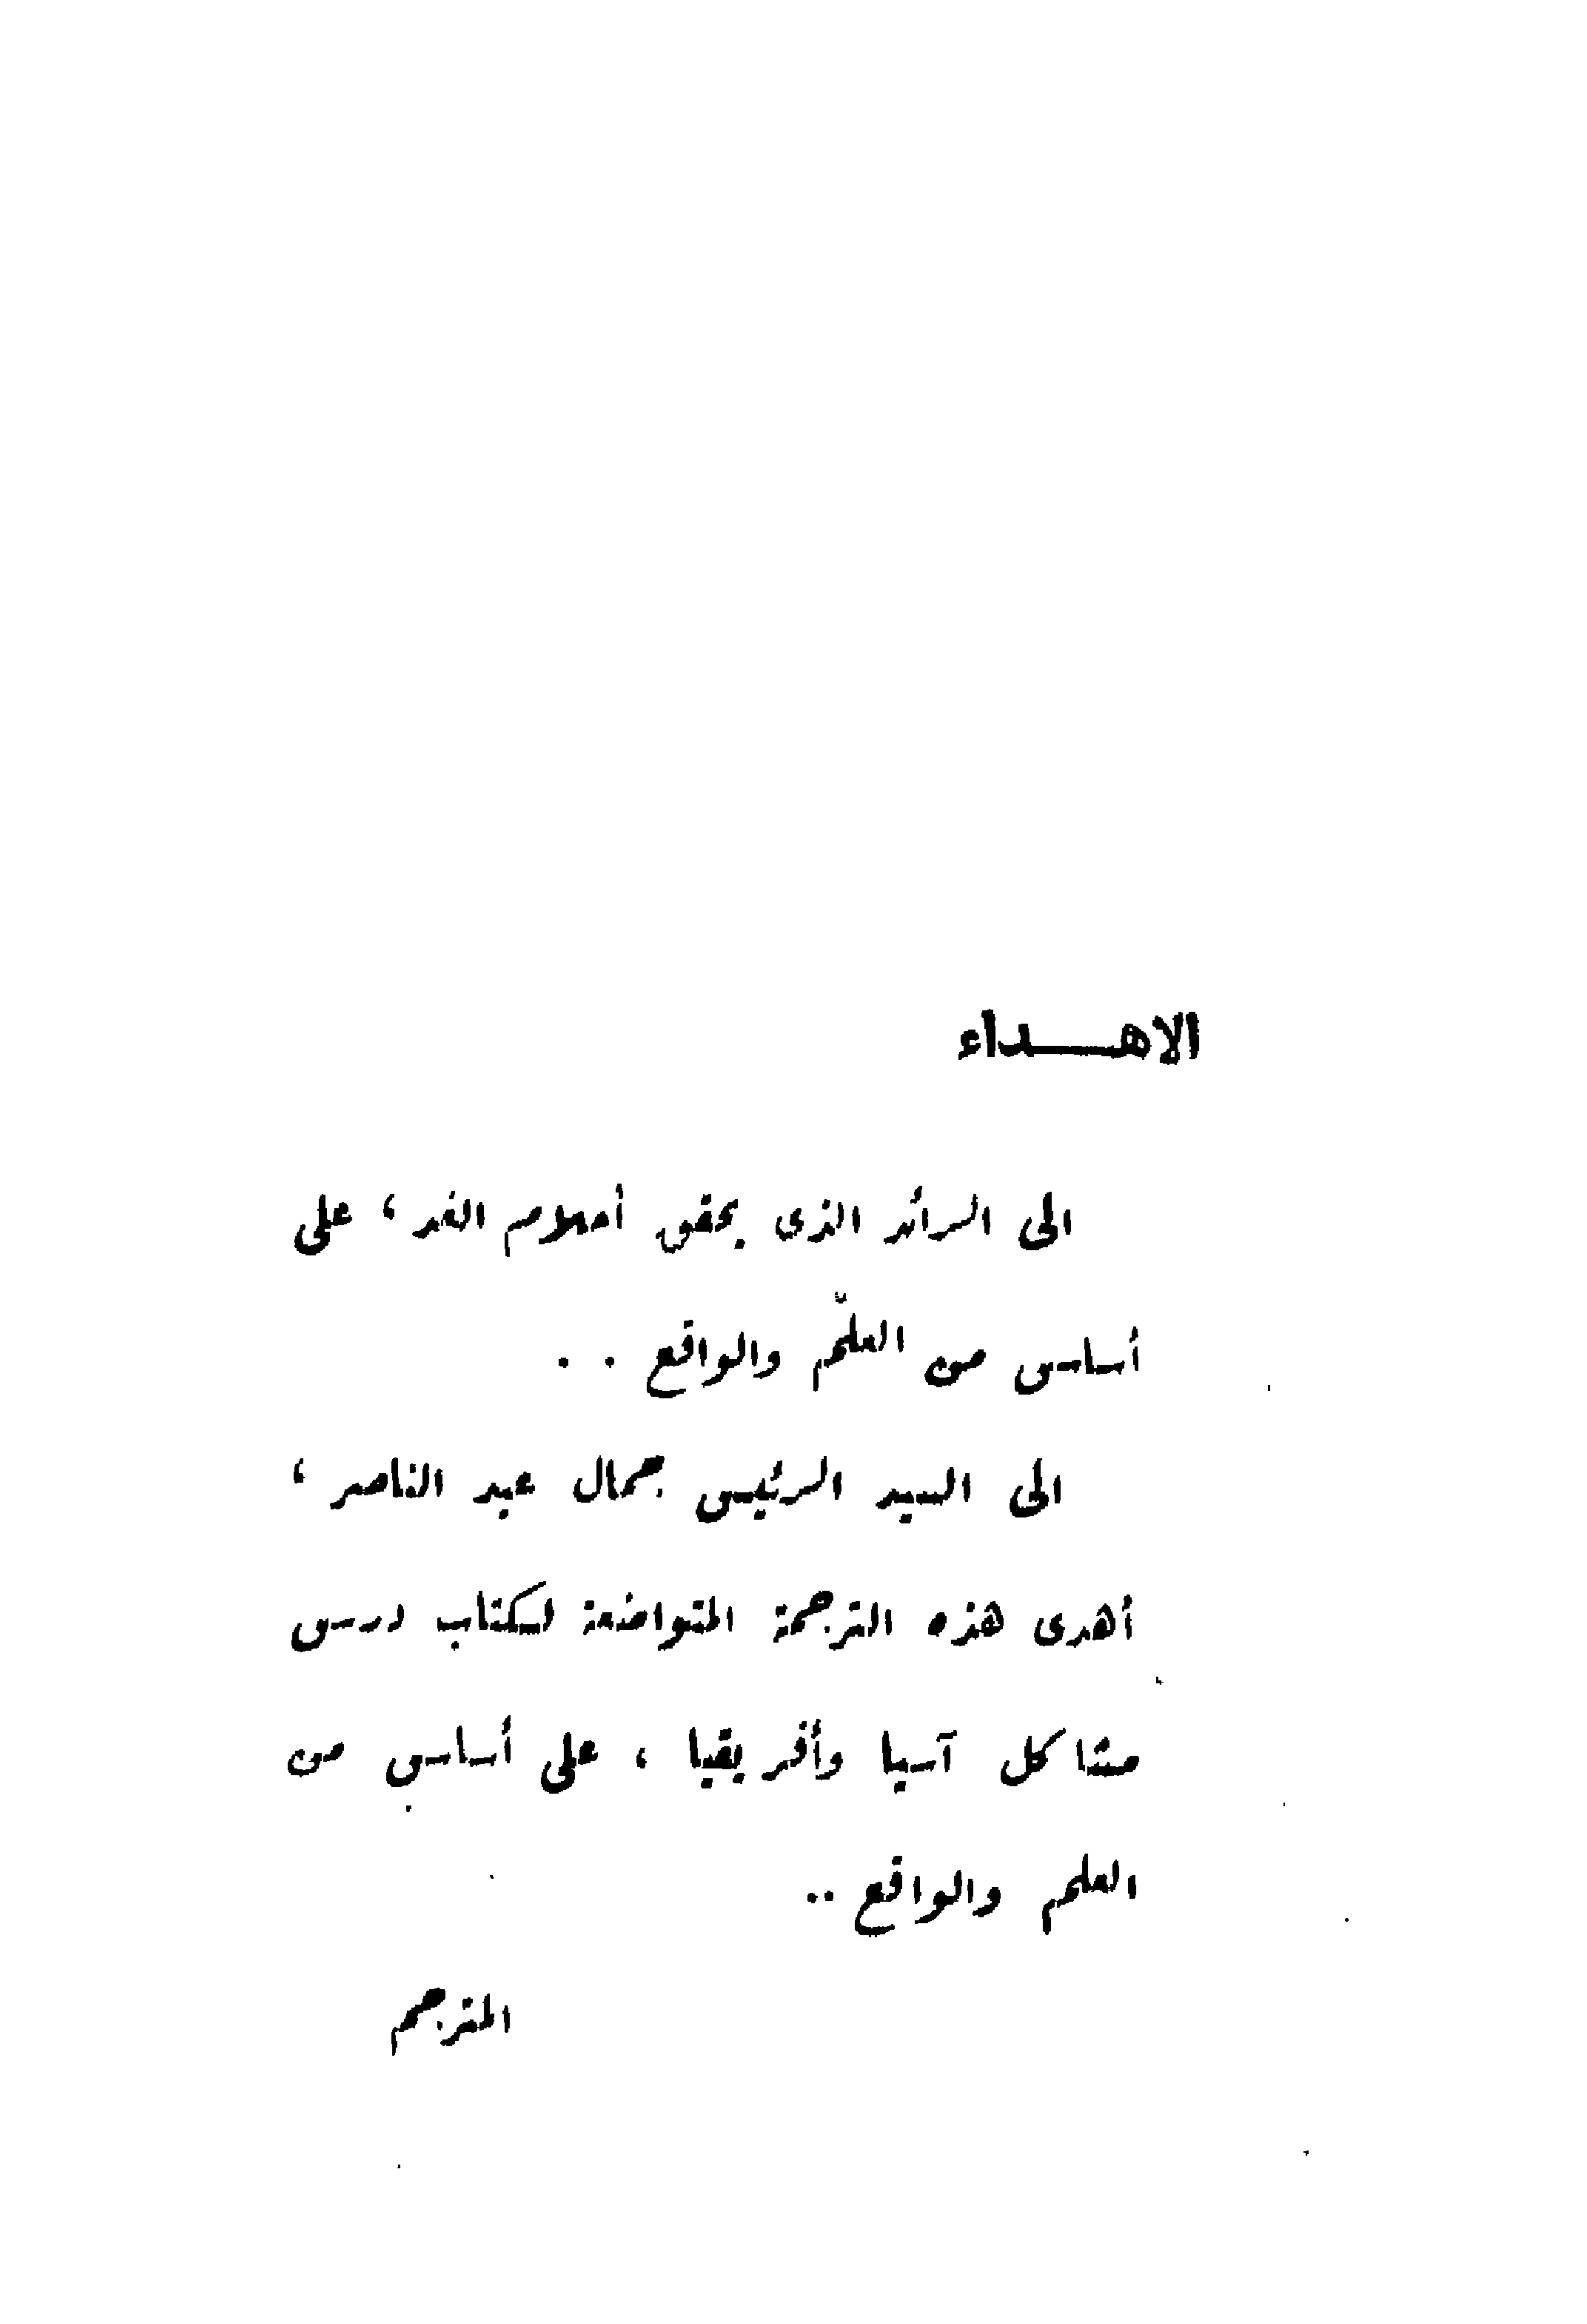 الاهـــداء
الى الرائد الذى يحقق أحلام الغد ، على
أساس من العلم والواقع . .
الى السيد الرئيس جمال عبد الناصر ،
أهدى هذه الترجمة المتواضعة لكتاب درس
مشاكل آسيا وأفريقيا ، على أساس من
العلم والواقع ..
المترجم